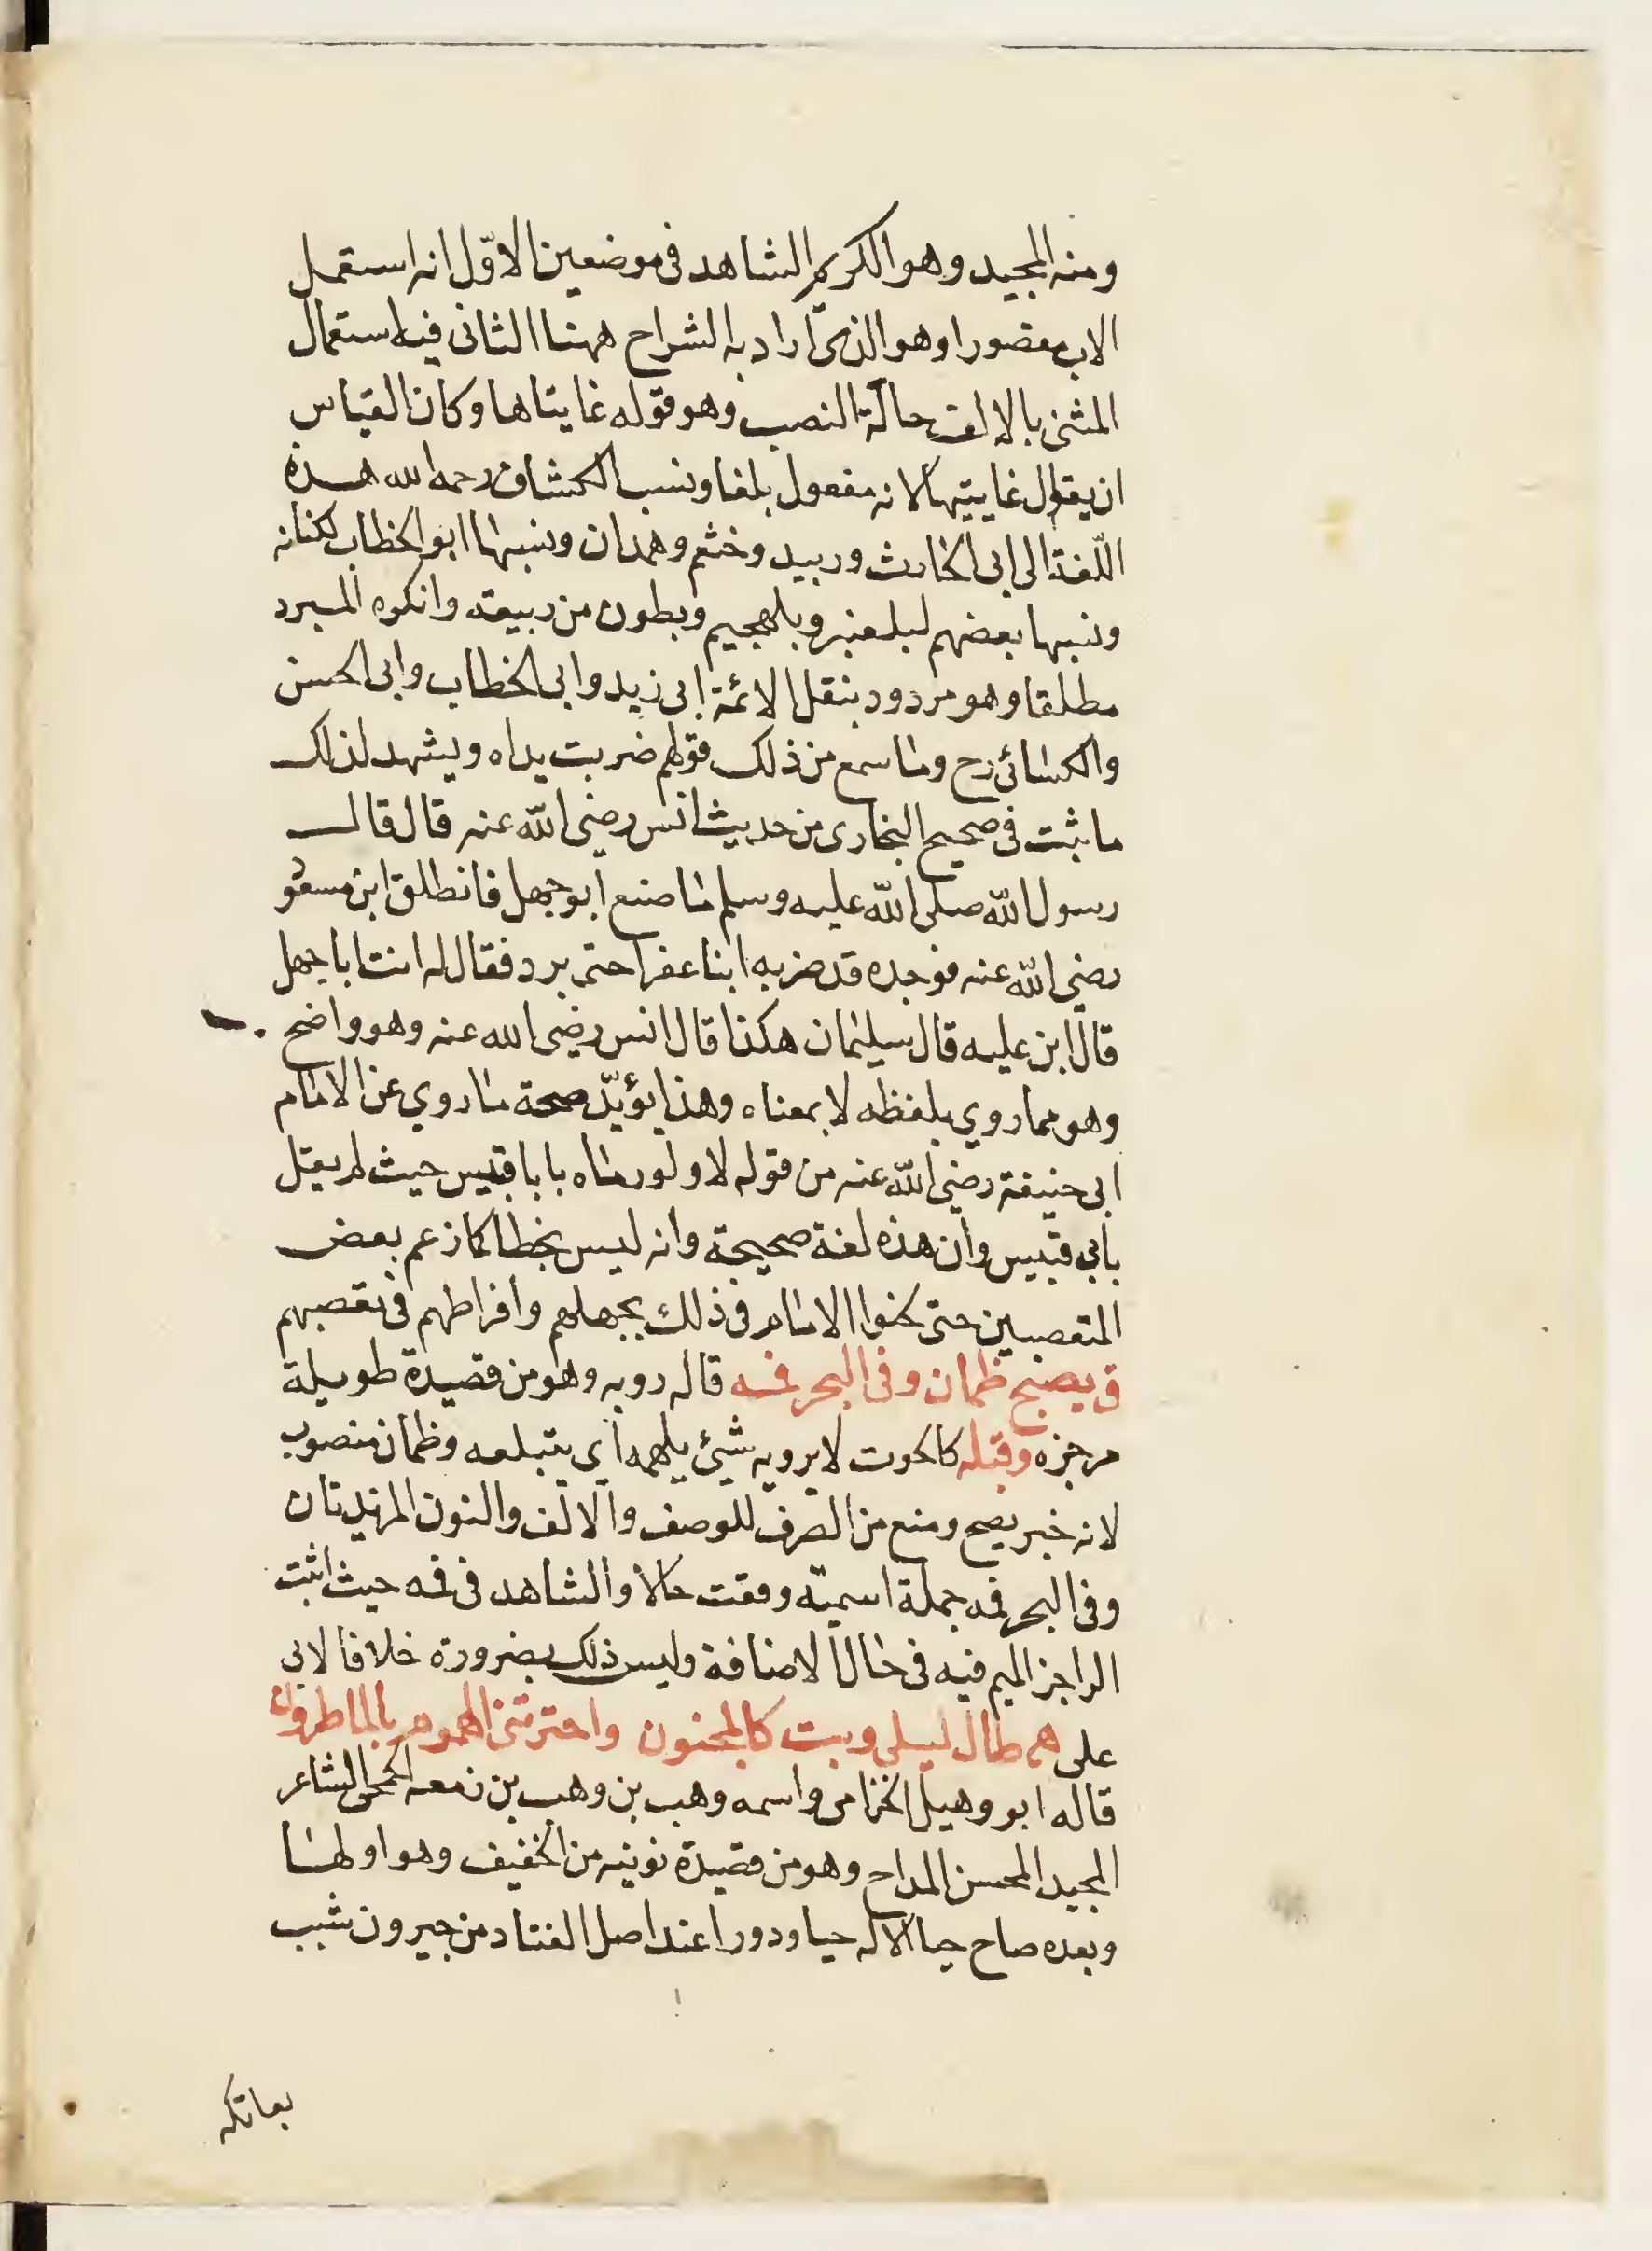 ومنه المجيد وهو الكريم الشاهد في موضعين الاوّل انه استعمل
الاب مقصورا وهو الذي اراد به الشراح ههنا الثاني فيه استعمال
المثنى بالالف حالة النصب وهو قوله غايتاها وكان القياس
ان يقول غايتيها لانه مفعول بلغا ونسب الكشاف رحمه الله هذه
اللّغة الى ابي الحارث وربيد وخثعم وهمدان ونسبها ابو الخطاب لكنانه
ونسبها بعضهم لبلعنبر وبلهجيم وبطون من ربيعة وانكره المبرد
مطلقا وهو مردود بنقل الائمة ابي زيد وابي الخطاب وابي الحسن
والكسائي رح وما سمع من ذلك قولهم ضربت يداه ويشهد لذلك
ما ثبت في صحيح البخاري من حديث انس رضي الله عنه قال قال
رسول الله صلى الله عليه وسلم ما صنع ابو جهل فانطلق ابن مسعود
رضي الله عنه فوجده قد ضربه ابنا عفرا حتى برد فقال له انت ابا جهل
قال ابن عليه قال سليمان هكذا قال انس رضي الله عنه وهو واضح
وهو مما روي بلفظه لا بمعناه وهذا يؤيّد صحة ما روي عن الامام
ابي حنيفة رضي الله عنه من قوله لا ولو رماه بابا قبيس حيث لم يقل
بابي قبيس وان هذه لغة صحيحة وانه ليس بخطا كما زعم بعض
المتعصبين حتى لحنوا الامام في ذلك بجهلهم وافراطهم في تعصبهم
ق يصبح ظمان وفي البحر فمه قاله روبه وهو من قصيدة طويلة
مرجزه وقبله كالحوت لا يرويه شيئ يلهمه اي يبتلعه وظمان منصوب
لانه خبر يصبح ومنع من الصرف للوصف والالف والنون المزيدتان
وفي البحر فمه جملة اسميّة وقعت حالا والشاهد في فمه حيث اثبت
الراجز الميم فيه في حال الاضافة وليس ذلك بضرورة خلافا لابي
على هم طال ليلي وبت كالمجنون واعترتني الهموم بالماطرون
قاله ابو وهيل الخزامي واسمه وهب بن وهب بن زمعه الجمحي الشاعر
المجيد المحسن المداح وهو من قصيدة نونيه من الخفيف وهو اولها
وبعده صاح حيا الاله حيا ودورا عند اصل القناد من جيرون شبب
بعاتكه